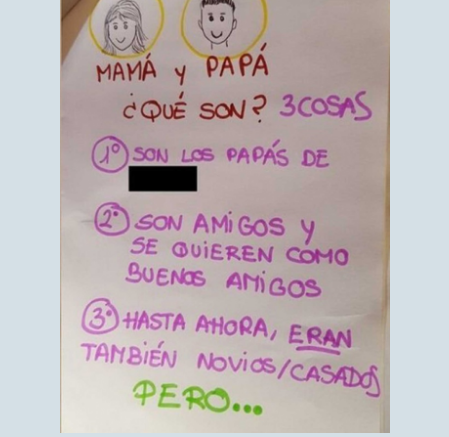 MAMÁ y PAPÁ
¿QUÉ SON? 3 COSAS
1º SON LOS PAPÁS DE
2º SON AMIGOS Y
SE QUIEREN COMO
BUENOS AMIGOS
3º HASTA AHORA, ERAN
TAMBIÉN NOVIOS/CASADOS
PERO...